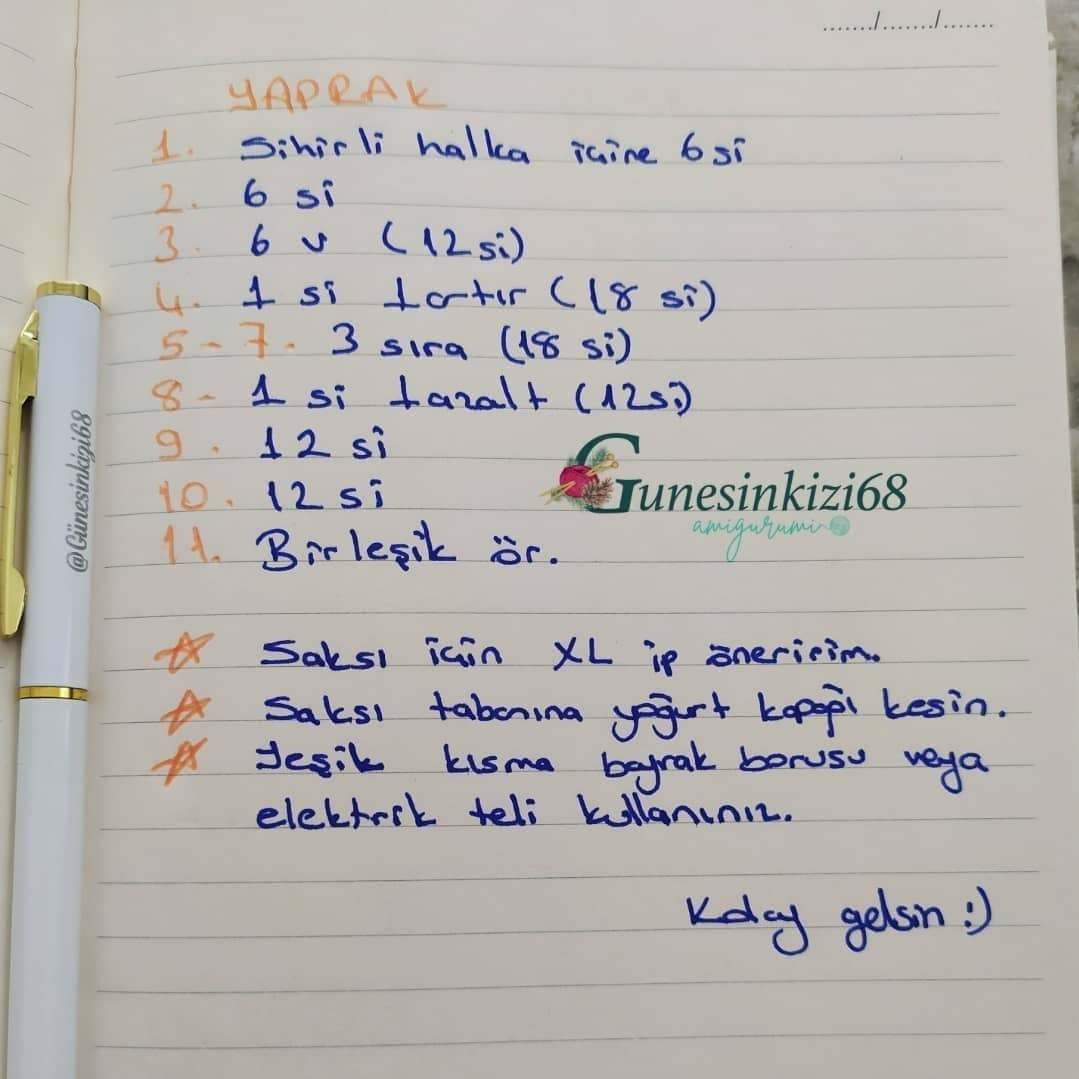 ......./......./.......
YAPRAK
1. Sihirli halka içine 6 si
2. 6 si
3. 6 v (12 si)
4. 1 si 1 artır (18 si)
5-7. 3 sıra (18 si)
8- 1 si 1 azalt (12 si)
9. 12 si
10. 12 si
11. Birleşik ör.
Gunesinkizi68
amigurumi
@Günesinkizi68
☆ Saksı için XL ip öneririm.
☆ Saksı tabanına yoğurt kapağı kesin.
☆ Yeşik kısma bayrak borusu veya
elektrik teli kullanınız.
Kolay gelsin :)